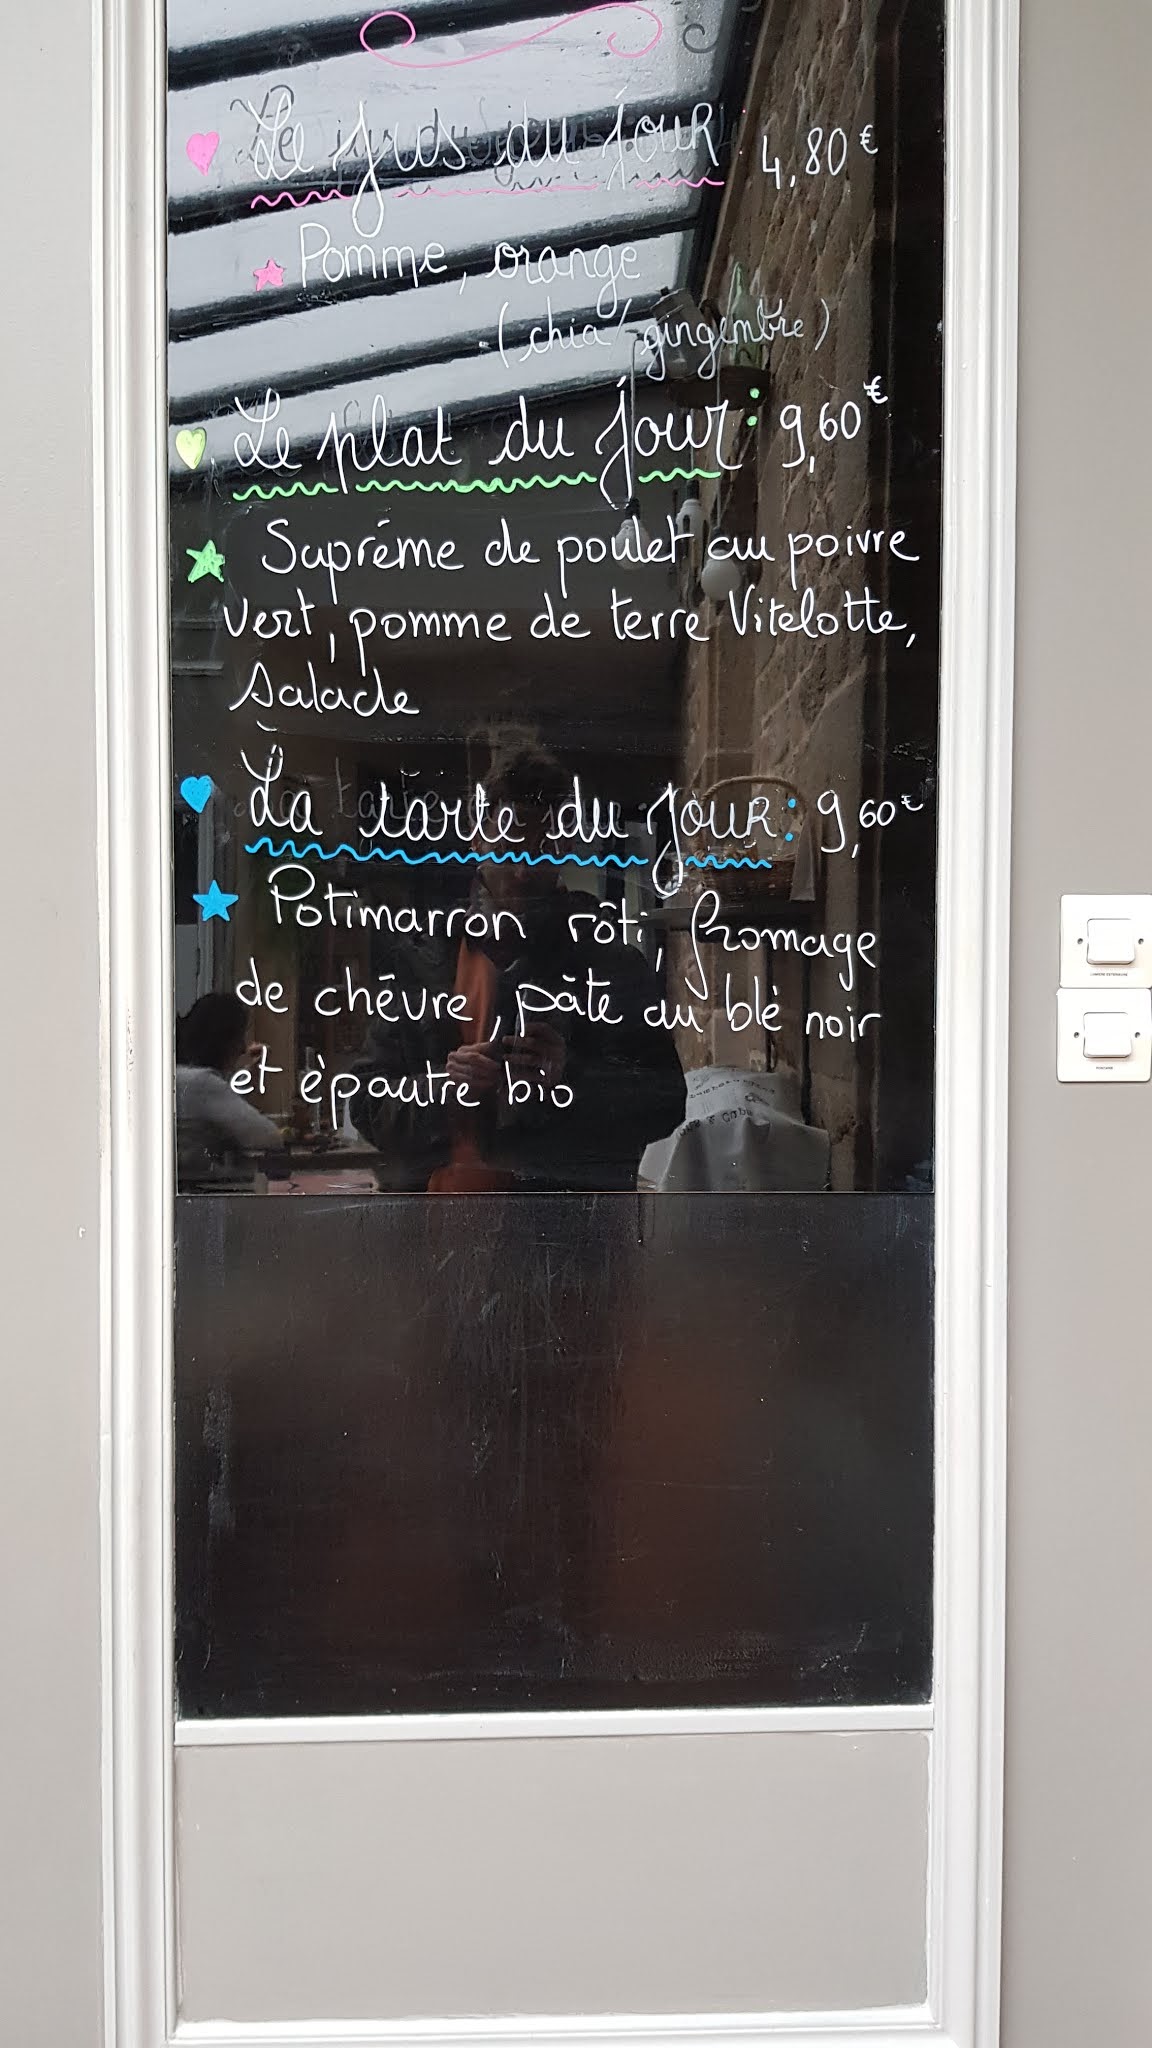 Le jus du jour : 4,80€
Pomme, orange
(chia/gingembre)
Le plat du jour : 9,60€
Suprême de poulet au poivre
vert, pomme de terre Vitelotte,
Salade
La tarte du jour : 9,60€
Potimarron rôti, fromage
de chèvre, pâte au blé noir
et épeautre bio